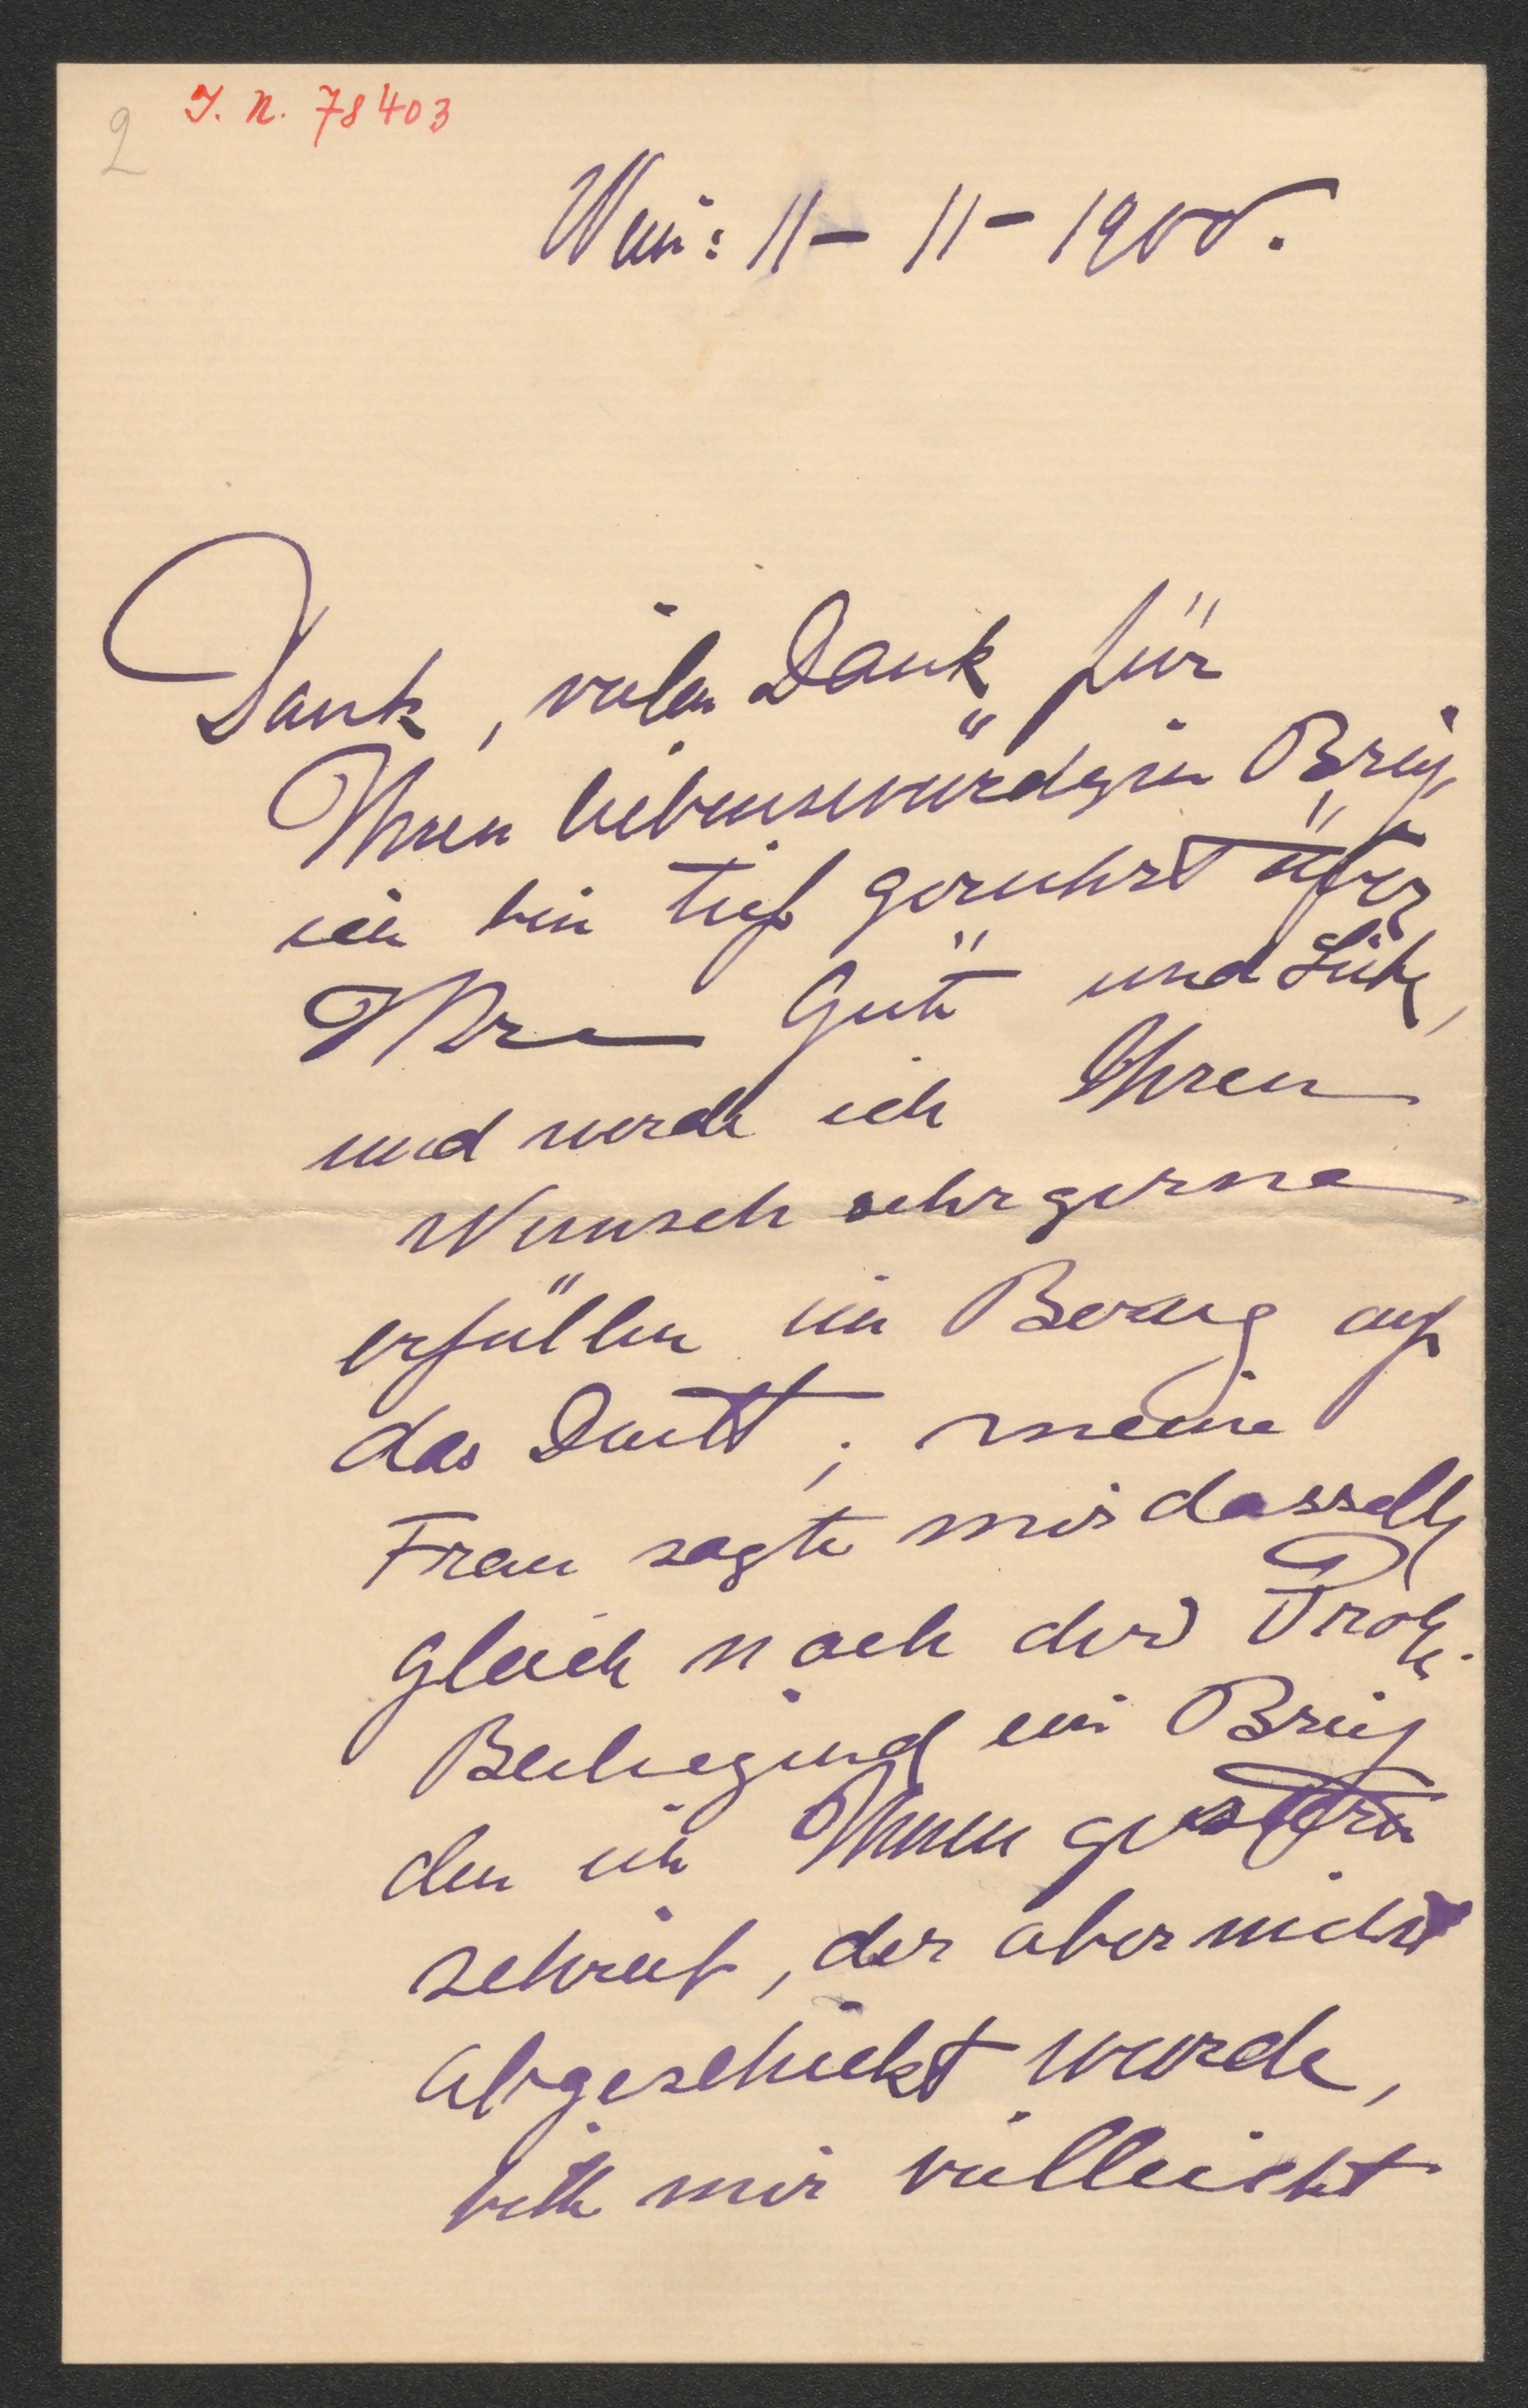 2
I. N. 78403
Wien: 11 – 11 – 1900.
Dank, vielen Dank für
Ihren liebenswürdigen Brief,
ich bin tief gerührt über
Ihre Güte und Liebe,
und werde ich Ihren
Wunsch sehr gerne
erfüllen in Bezug auf
das Duett; meine
Frau sagte mir dasselbe
gleich nach der Probe.
Beiliegend ein Brief
den ich Ihnen gestern
schrieb, der aber nicht
abgeschickt wurde,
bitte mir vielleicht